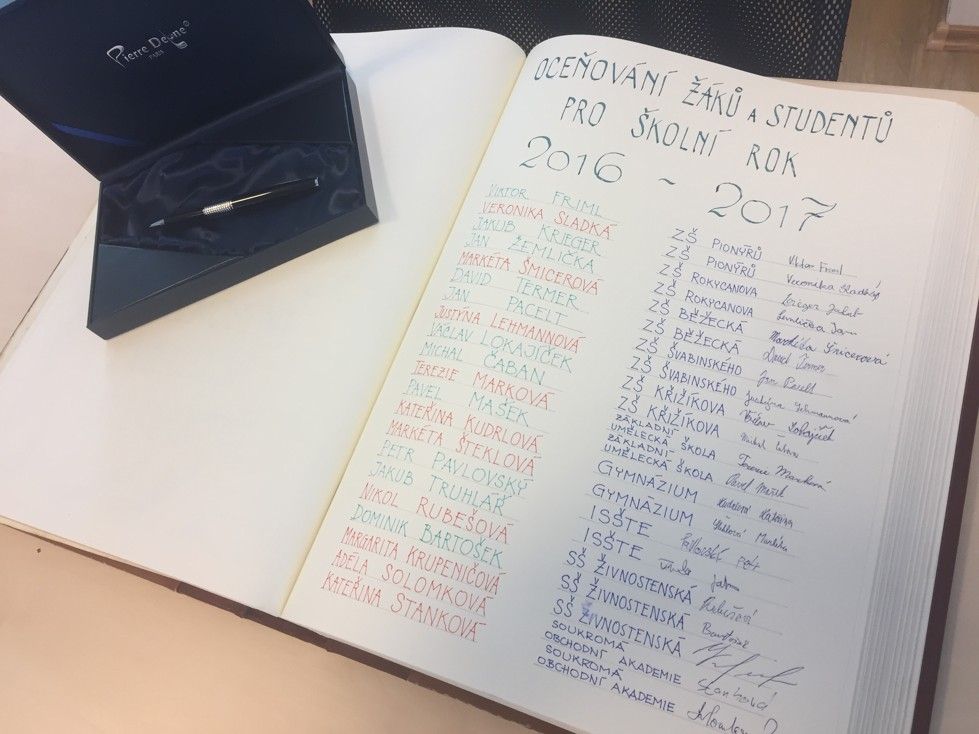 Pierre Deone®
PARIS
OCEŇOVÁNÍ ŽÁKŮ A STUDENTŮ
PRO ŠKOLNÍ ROK
2016 ~ 2017
VIKTOR FRIML ZŠ PIONÝRŮ Viktor Friml
VERONIKA SLADKÁ ZŠ PIONÝRŮ Veronika Sladká
JAKUB KRIEGER ZŠ ROKYCANOVA Krieger Jakub
JAN ŽEMLIČKA ZŠ ROKYCANOVA Žemlička Jan
MARKÉTA ŠMICEROVÁ ZŠ BĚŽECKÁ Markéta Šmicerová
DAVID TERMER ZŠ BĚŽECKÁ David Termer
JAN PACELT ZŠ ŠVABINSKÉHO Jan Pacelt
JUSTÝNA LEHMANNOVÁ ZŠ ŠVABINSKÉHO Justýna Lehmannová
VÁCLAV LOKAJÍČEK ZŠ KŘIŽÍKOVA Václav Lokajíček
MICHAL ČABAN ZŠ KŘIŽÍKOVA Michal Čaban
TEREZIE MARKOVÁ ZÁKLADNÍ UMĚLECKÁ ŠKOLA Terezie Marková
PAVEL MAŠEK ZÁKLADNÍ UMĚLECKÁ ŠKOLA Pavel Mašek
KATEŘINA KUDRLOVÁ GYMNÁZIUM Kudrlová Kateřina
MARKÉTA ŠTEKLOVÁ GYMNÁZIUM Šteklová Markéta
PETR PAVLOVSKÝ ISŠTE Pavlovský Petr
JAKUB TRUHLÁŘ ISŠTE
NIKOL RUBEŠOVÁ SŠ ŽIVNOSTENSKÁ Rubešová
DOMINIK BARTOŠEK SŠ ŽIVNOSTENSKÁ Bartošek
MARGARITA KRUPENIČOVÁ SŠ ŽIVNOSTENSKÁ
ADÉLA SOLOMKOVÁ SOUKROMÁ OBCHODNÍ AKADEMIE Stanková
KATEŘINA STANKOVÁ SOUKROMÁ OBCHODNÍ AKADEMIE